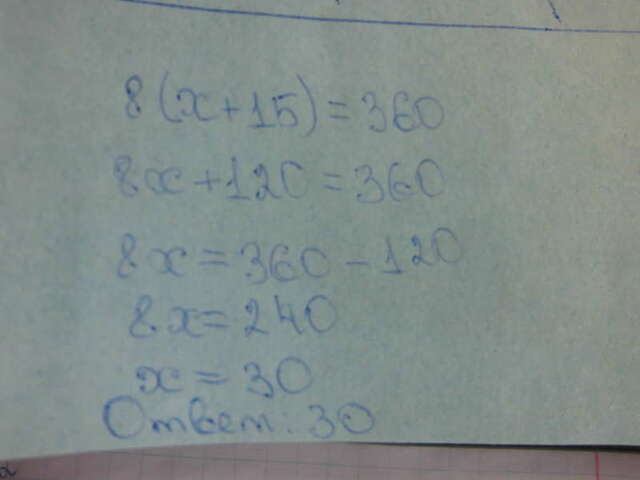 8(x+15)=360
8x+120=360
8x=360-120
8x=240
x=30
Ответ: 30